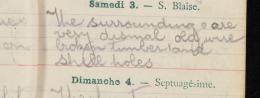 Samedi 3. — S. Blaise.
The surroundings are
very dismal old wire
broken timber and
shell holes
Dimanche 4. — Septuagésime.